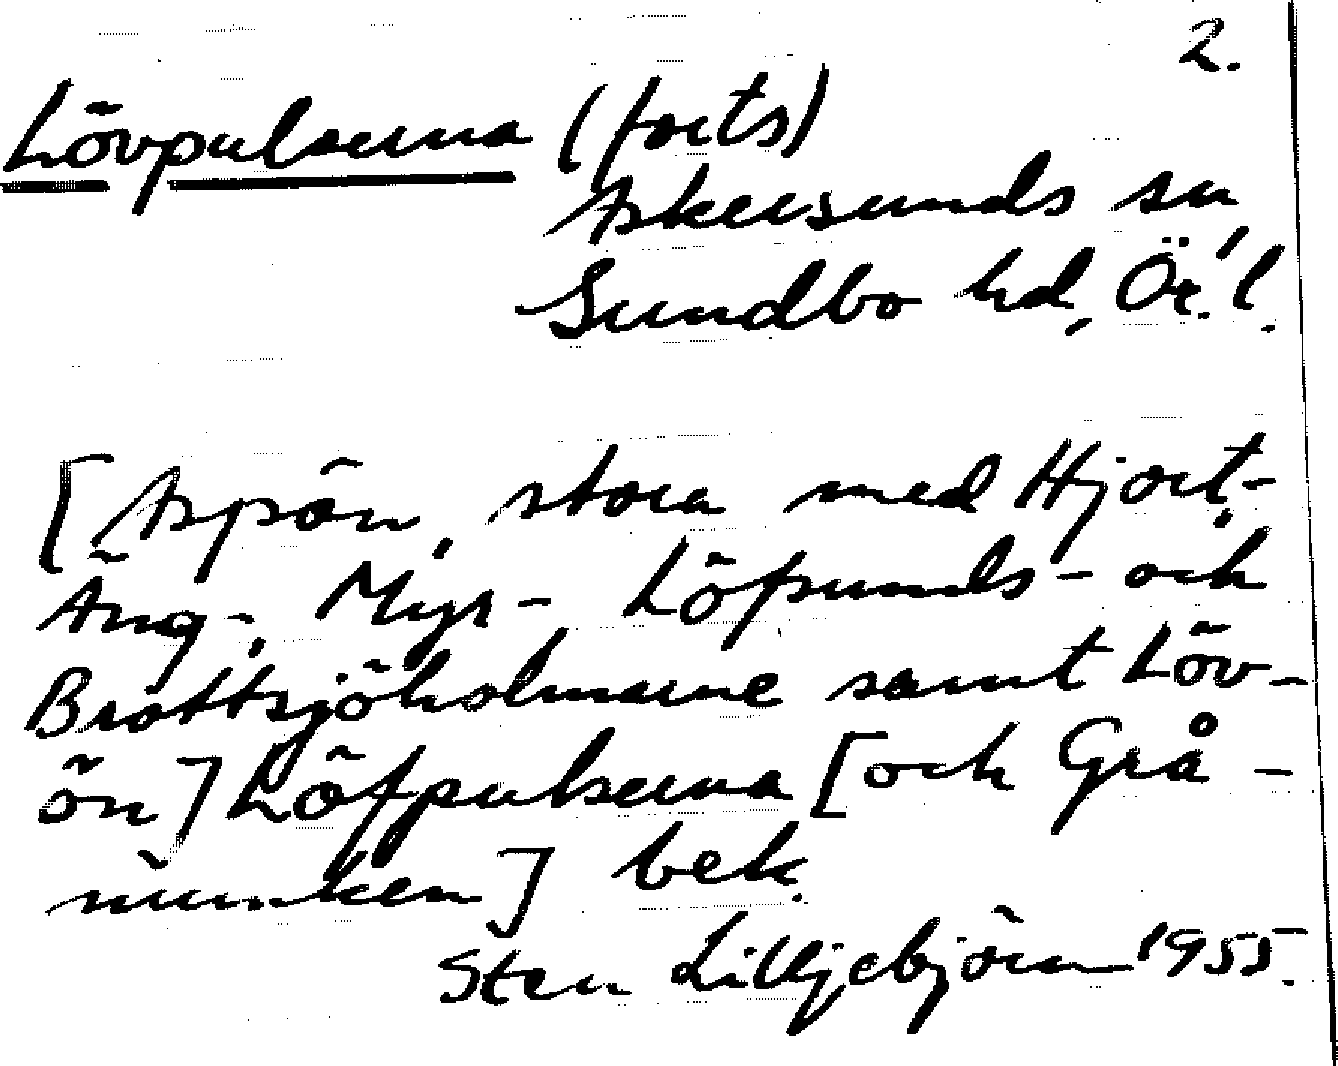 2.
Lövpulserna (forts)
Askersunds sn
Sundbo hd, Ör. l.
[Aspön, stora med Hjort-,
Äng-, Myr- Löfsunds- och
Brottsjöholmarne samt Löv-
ön] Löfpulserna [och Grå-
munken] bek.
Sten Lilljebjörn 1955.